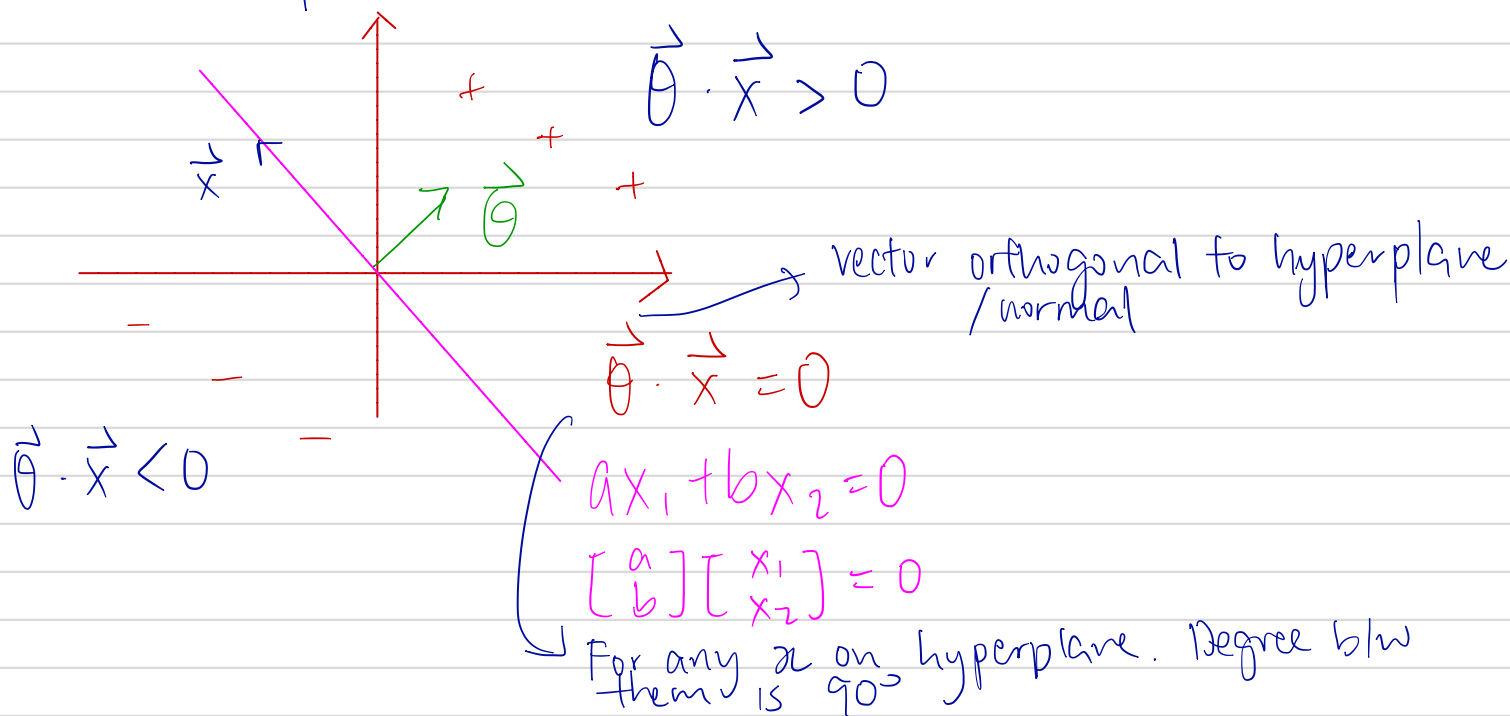 +
θ⃗ · x⃗ > 0
+
x⃗
+
θ⃗
vector orthogonal to hyperplane
/normal
−
θ⃗ · x⃗ = 0
−
−
θ⃗ · x⃗ < 0
ax₁ + bx₂ = 0
[a b] [x₁ x₂] = 0
For any x on hyperplane. Degree b/w
them is 90°